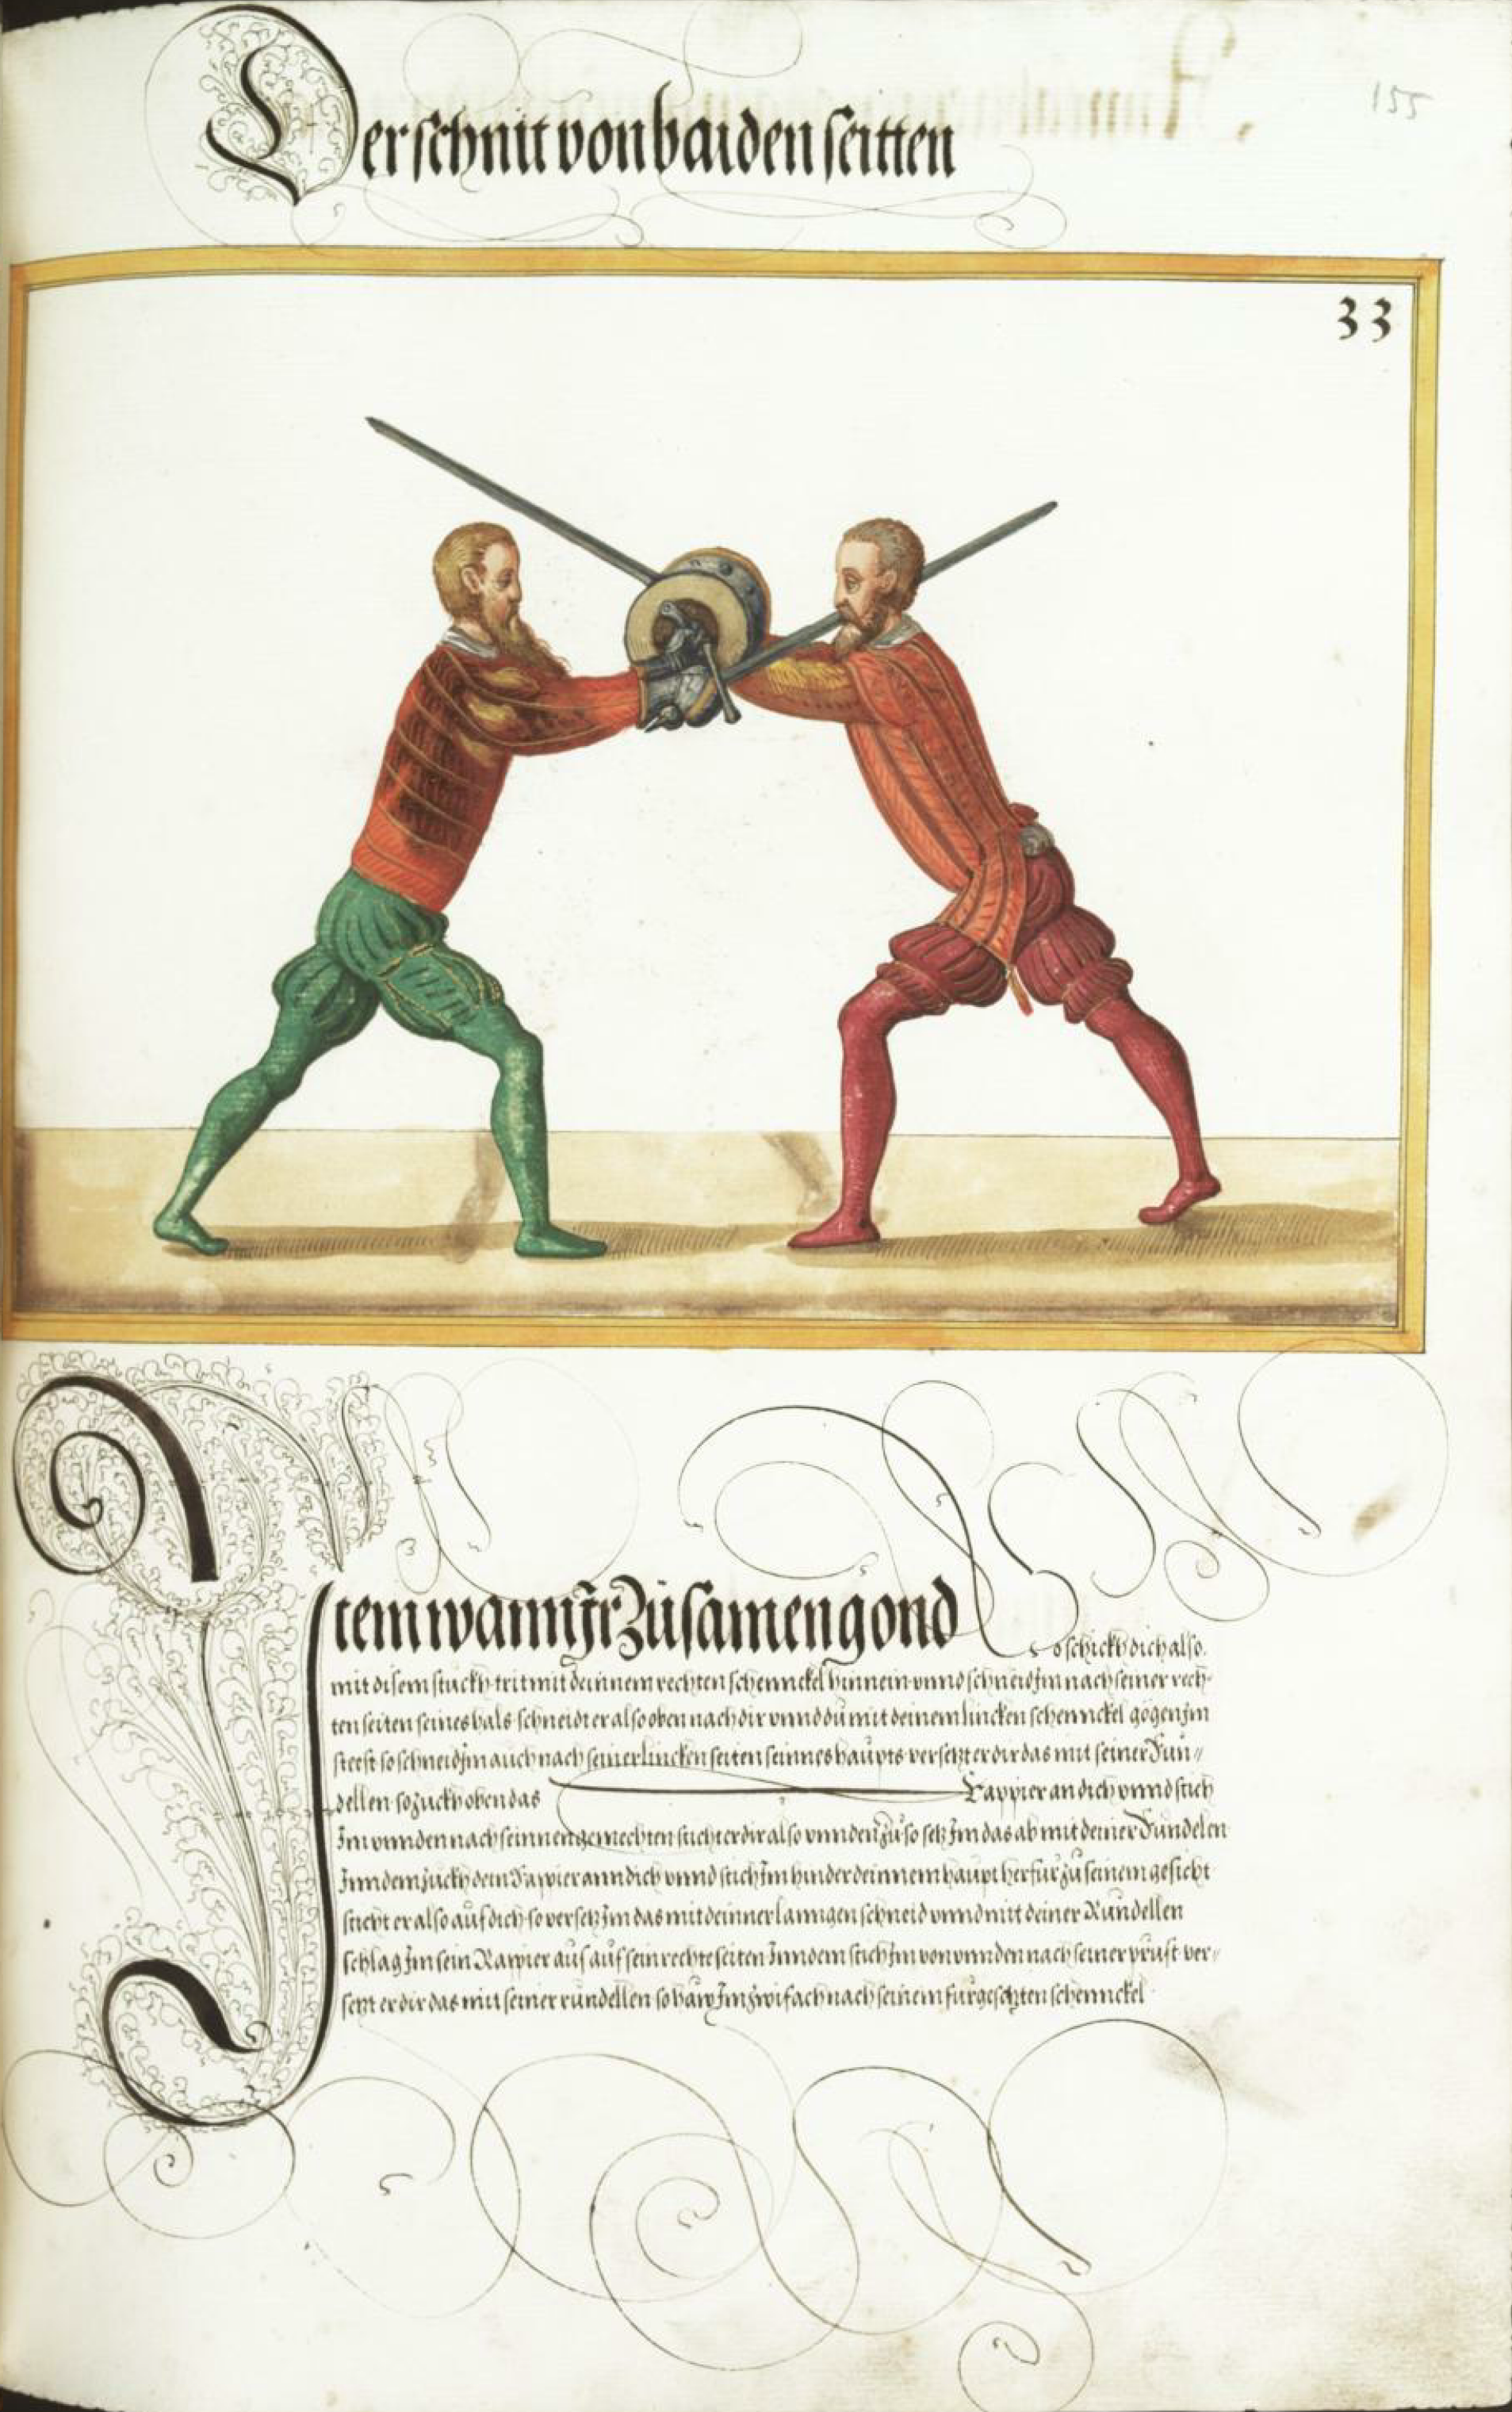 155
Der schnit von baiden seitten
33
Item wann Ir zusamen gond so schickh dich also
mit disem stuckh trit mit deinnem rechten schennckel hinnein vnnd schneid Im nach seiner rech-
ten seiten seines hals schneidt er also oben nach dir vnnd du mit deinem lincken schennckel gögen Im
steest so schneid Im auch nach seiner lincken seiten seinnes haupts versetzt er dir das mit seiner Run//
dellen so zuckh oben das Rappier an dich vnnd stich
Im vnnden nach seinnen gemechten sticht er dir also vnnden zu so setz Im das ab mit deiner Rundelen
Inn dem zuckh dein Rappier ann dich vnnd stich Im hinder deinnem haupt herfür zu seinem gesicht
sticht er also auf dich so versetz Im das mit deinner lanngen schneid vnnd mit deiner Rundellen
schlag Im sein Rappier aus auf sein rechte seiten Inn dem stich Im von vnnden nach seiner prust ver//
setzt er dir das mit seiner rundellen so haw Im zwifach nach seinem fürgesetzten schennckel